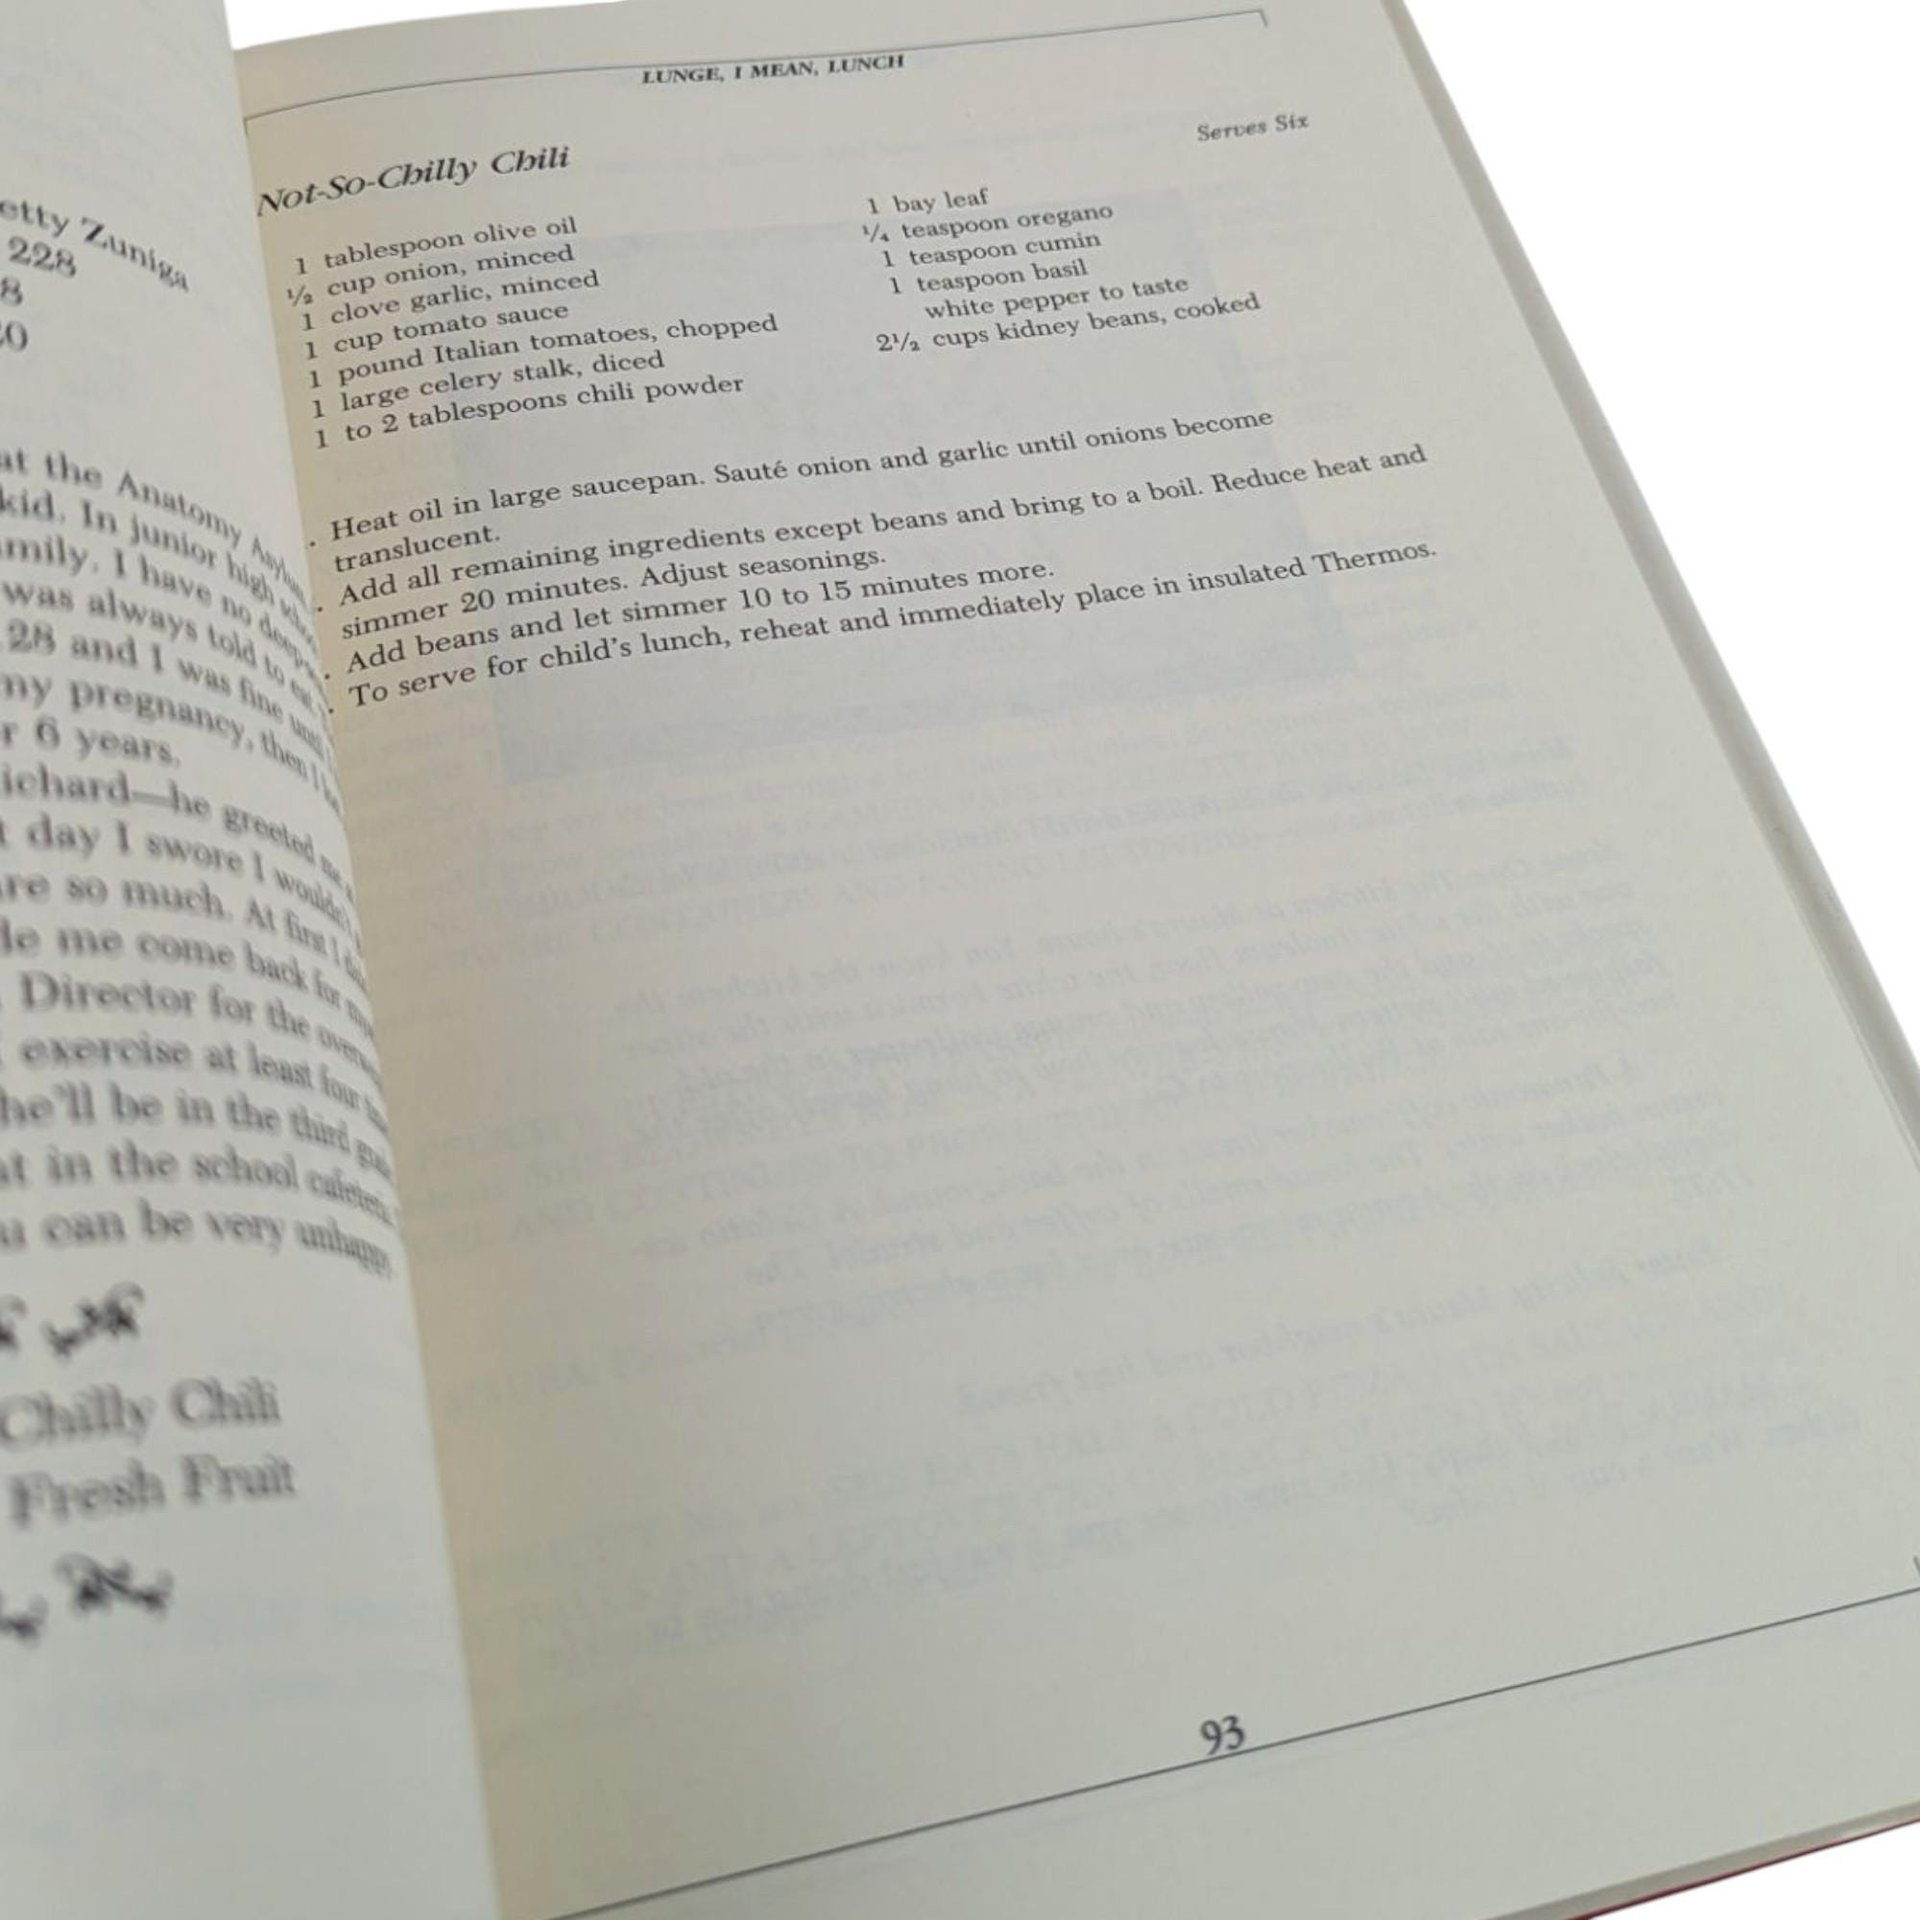 etty Zuniga
228
8
at the Anatomy
kid. In junior high
mily. I have no
was always told to eat
28 and I was fine until
my pregnancy, then I
r 6 years.
ichard—he greeted me
t day I swore I wouldn't
re so much. At first I
de me come back for
Director for the
exercise at least four
he'll be in the third
at in the school
u can be very unhappy.
Chilly Chili
Fresh Fruit
LUNGE, I MEAN, LUNCH
Not-So-Chilly Chili
Serves Six
1 tablespoon olive oil
½ cup onion, minced
1 clove garlic, minced
1 cup tomato sauce
1 pound Italian tomatoes, chopped
1 large celery stalk, diced
1 to 2 tablespoons chili powder
1 bay leaf
¼ teaspoon oregano
1 teaspoon cumin
1 teaspoon basil
white pepper to taste
2½ cups kidney beans, cooked
. Heat oil in large saucepan. Sauté onion and garlic until onions become
translucent.
. Add all remaining ingredients except beans and bring to a boil. Reduce heat and
simmer 20 minutes. Adjust seasonings.
. Add beans and let simmer 10 to 15 minutes more.
. To serve for child's lunch, reheat and immediately place in insulated Thermos.
93